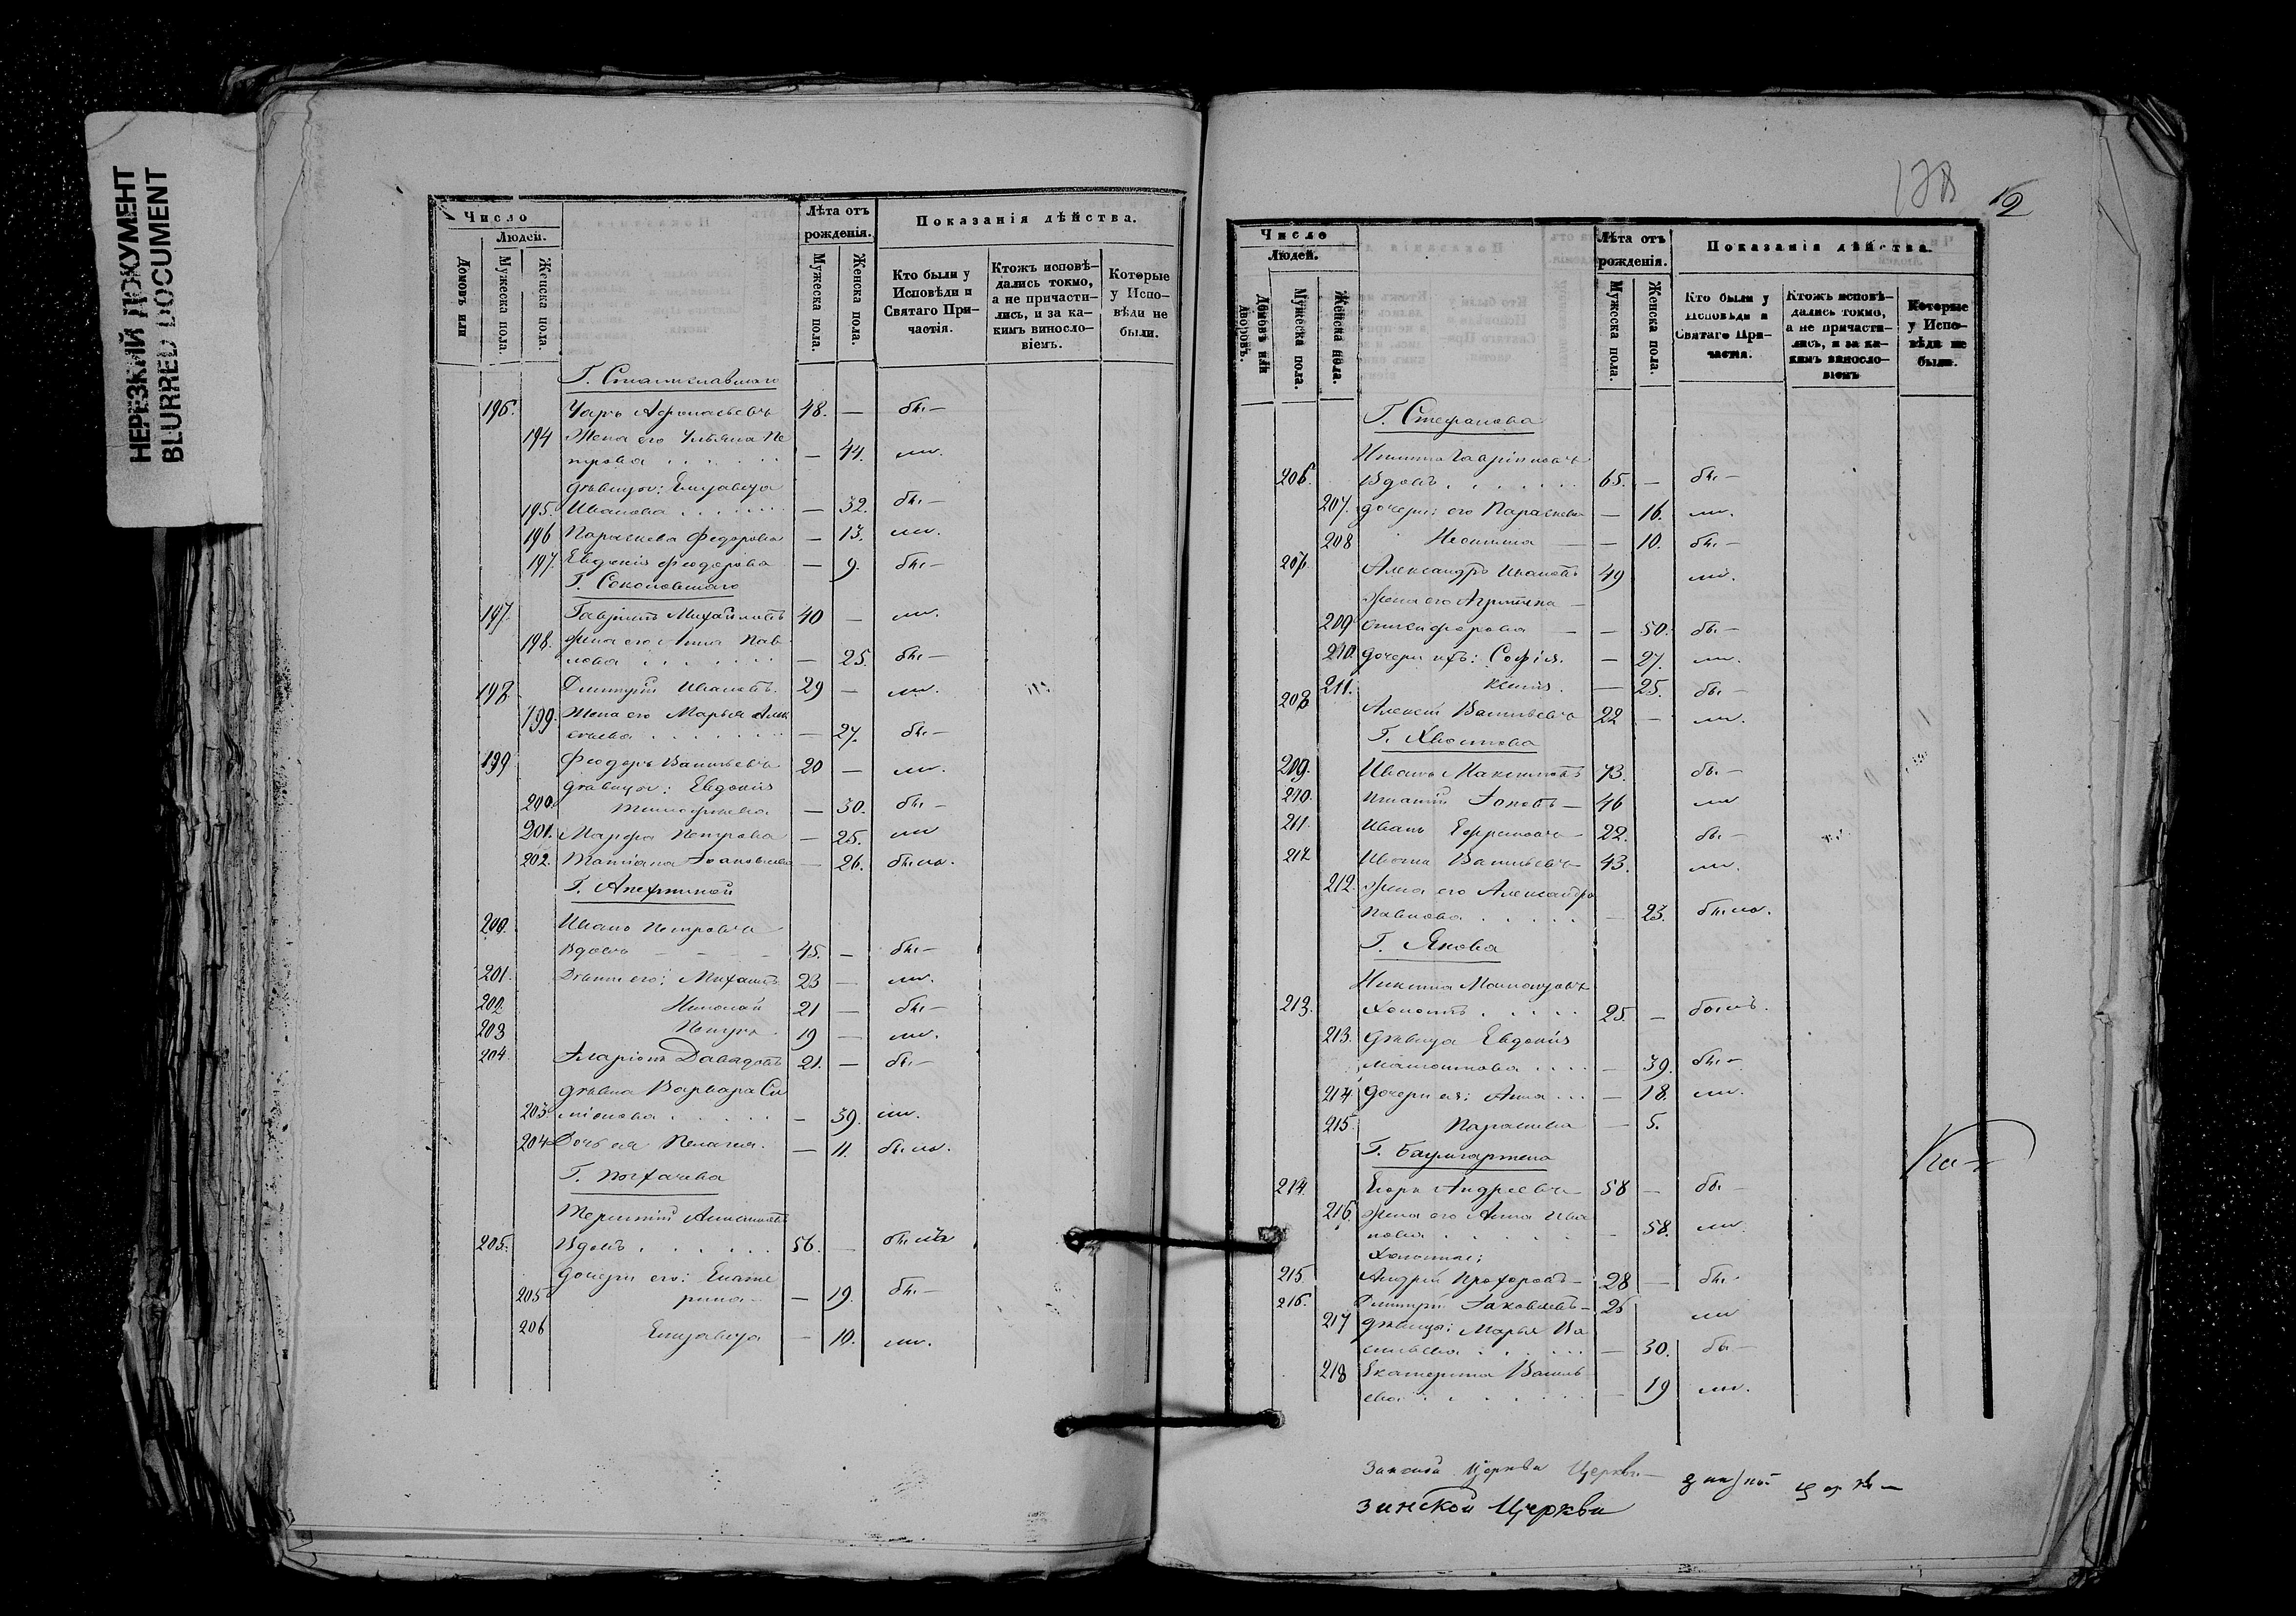 НЕРЕЗКИЙ ДОКУМЕНТ
BLURRED DOCUMENT
Число
Людей.
Домовъ или
Мужеска пола.
Женска пола.
Лѣта отъ рожденія.
Мужеска пола.
Женска пола.
Показанія дѣйства.
Кто были у Исповѣди и Святаго Причастія.
Ктожъ исповѣдались токмо, а не причастились, и за какимъ винословіемъ.
Которые у Исповѣди не были.
Г. Станиславскаго
196. 48. — бы—
194 Жена его Ульяна Пе
трова — 44. ли.
дѣвицы: Елизавета
195. Иванова — 32. бы—
196 Параскева Федорова — 13. ли.
197. Евдокія Феодорова — 9. бы—
Г. Соколовскаго
197. Гавріилъ Михайловъ 40 — ли.
198. жена его Анна Пав
лова — 25. бы—
198 Дмитрій Ивановъ. 29 — ли.
199. Жена его Марья Алек
сѣева — 27. бы—
199 Феодоръ Васильевъ 20 — ли.
дѣвицы: Евдокія
200. Тимофѣева — 30. бы—
201. Марфа Петрова — 25. ли
202. Татіана Іаковлева — 26. были.
200. Иванъ Петровъ
Вдовъ 45. — бы—
201. Дѣти его: Михаилъ 23 — ли.
202 Николай 21 — бы—
203 Петръ. 19 — ли.
204. Иларіонъ Давыдовъ 21. — бы—
дѣвка Варвара Си
203. міонова — 39. ли.
204 Дочь ея Пелагія. — 11. были.
205. Вдовъ 56. — былъ
дочери его: Екате
205 рина — 19. бы—
206 Елизавета — 10. ли.
128
12
Число
Людей.
Домовъ или дворовъ.
Мужеска пола.
Женска пола.
Лѣта отъ рожденія.
Мужеска пола.
Женска пола.
Показанія дѣйства.
Кто были у Исповѣди и Святаго Причастія.
Ктожъ исповѣдались токмо, а не причастились, и за какимъ винословіемъ
Которые у Исповѣди не были.
Г. Стефанова
Никита Гавріиловъ
206. Вдовъ 65. — бы—
207. дочери: его Параскева — 16. ли.
208 — 10. бы—
207. Александръ Ивановъ 49 ли.
жена его Агрипина —
209 Онисифорова — 50. бы—
210. дочери ихъ: Софія. — 27. ли.
211. Ксенія. — 25. бы—
208 Алексѣй Васильевъ 22 — ли.
Г. Хвостова
209. Иванъ Максимовъ 73. бы—
210. Игнатій 46 ли
211. Иванъ Ефремовъ 22. бы—
212 Иванъ Васильевъ 43. ли.
212. жена его Александра
Павлова — 23. были.
Г. Якова
213. Холостъ 25. — былъ.
213. дѣвица Евдокія
— 39. бы—
214 дочери ея: Анна — 18. ли.
215. Параскева — 5.
Г. Баумгартена
214. Егоръ Андреевъ 58 — бы—
216. жена его Анна Ива
нова — 58. ли
Холостые;
215. Андрей Прохоровъ 28 — бы—
216. Дмитрій Іаковлевъ 26 ли
217 дѣвицы: Марья Ва
сильева — 30. бы—
218 Екатерина Василь
ева — 19 ли.
Церкви
зинской Церкви